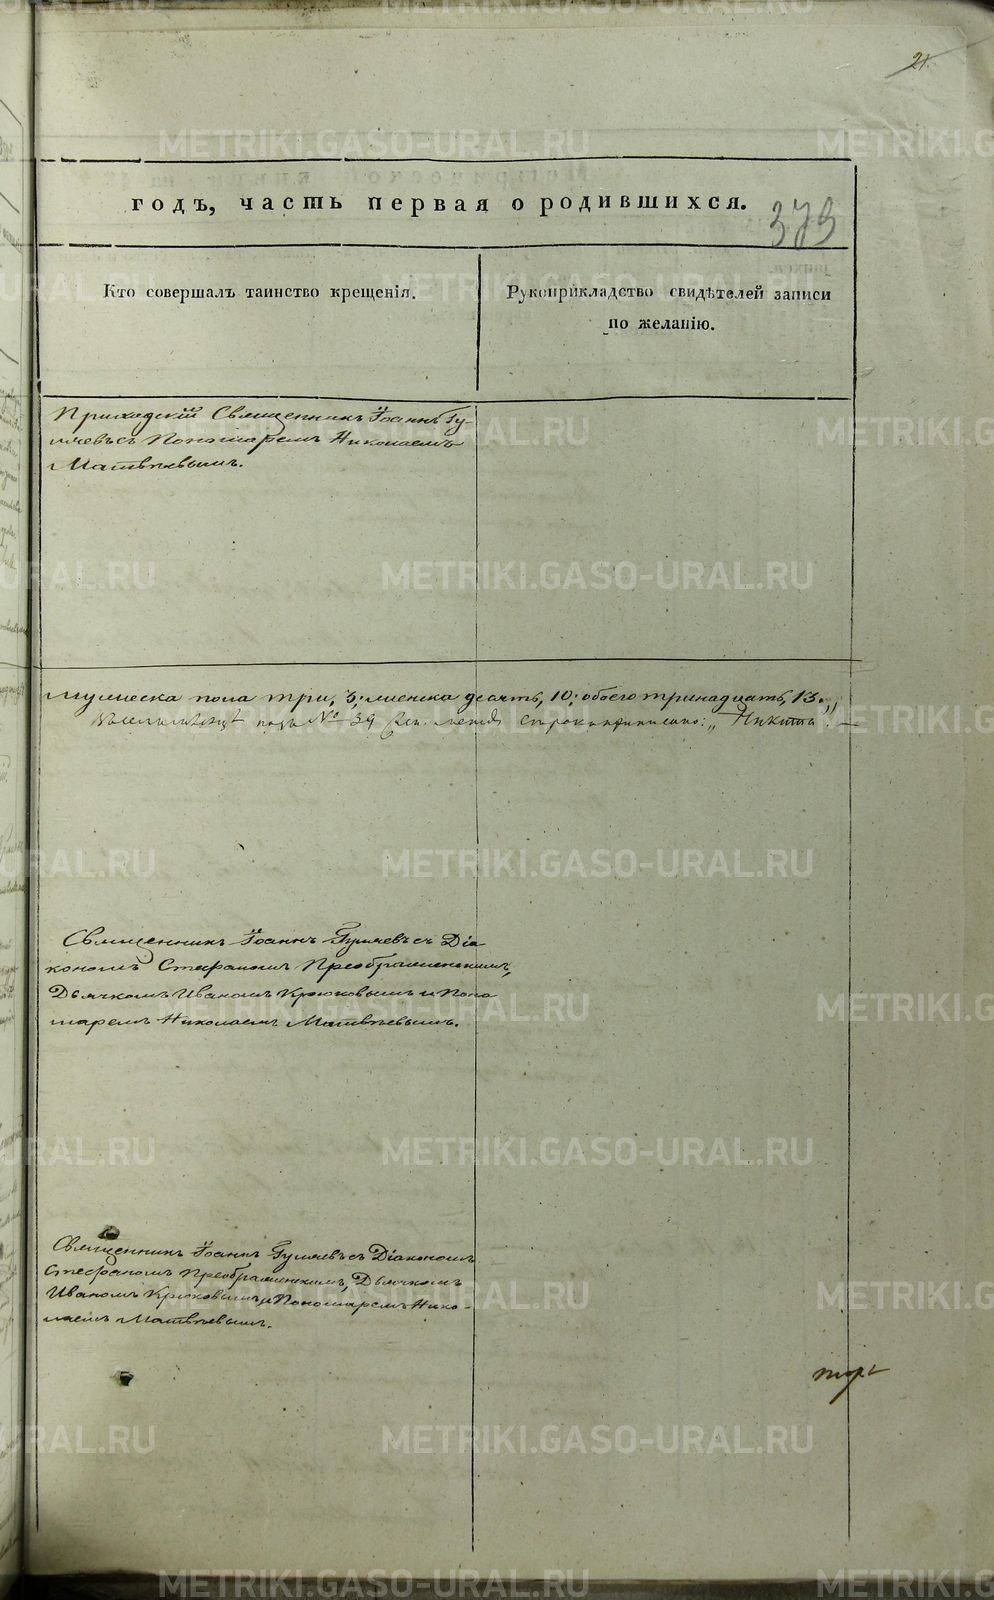 21.
годъ, часть первая о родившихся.
379
Кто совершалъ таинство крещенія.
Рукоприкладство свидѣтелей записи
по желанію.
Приходскій Священникъ Іоаннъ Гу-
ляевъ съ Пономаремъ Николаемъ
Матвѣевымъ.
Мужеска пола три, 3; женска десять, 10; обоего тринадцать, 13.
подъ № 39 между строками приписано: „Никита“. —
Священникъ Іоаннъ Гуляевъ съ Діа
кономъ Стефаномъ Преображенскимъ,
Дьячкомъ Иваномъ Крюковымъ и Поно
маремъ Николаемъ Матвѣевымъ.
Священникъ Іоаннъ Гуляевъ съ Діакономъ
Стефаномъ Преображенскимъ, Дьячкомъ
Иваномъ Крюковымъ и Пономаремъ Нико-
лаемъ Матвѣевымъ.
METRIKI.GASO-URAL.RU